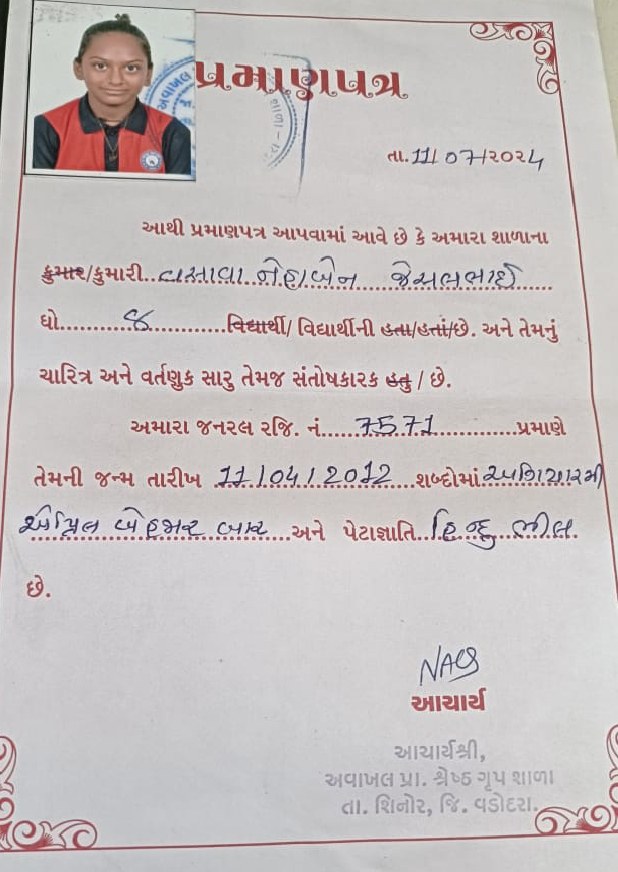 પ્રમાણપત્ર
અવાખલ
શાળા
તા. 11/07/૨૦૨૪
આથી પ્રમાણપત્ર આપવામાં આવે છે કે અમારા શાળાના
કુમાર/કુમારી..વસાવા નેહાબેન જેસલભાઈ
ધો..........૪..........વિદ્યાર્થી/ વિદ્યાર્થીની હતા/હતાં/છે. અને તેમનું
ચારિત્ર અને વર્તણુક સારુ તેમજ સંતોષકારક હતુ / છે.
અમારા જનરલ રજિ. નં.....7571..........પ્રમાણે
તેમની જન્મ તારીખ 11/04/2012....શબ્દોમાં અગિયારમી
એપ્રિલ બેહજાર બાર....અને પેટાજ્ઞાતિ..હિન્દુ ભીલ
છે.
આચાર્ય
આચાર્યશ્રી,
અવાખલ પ્રા. શ્રેષ્ઠ ગૃપ શાળા
તા. શિનોર, જિ. વડોદરા.